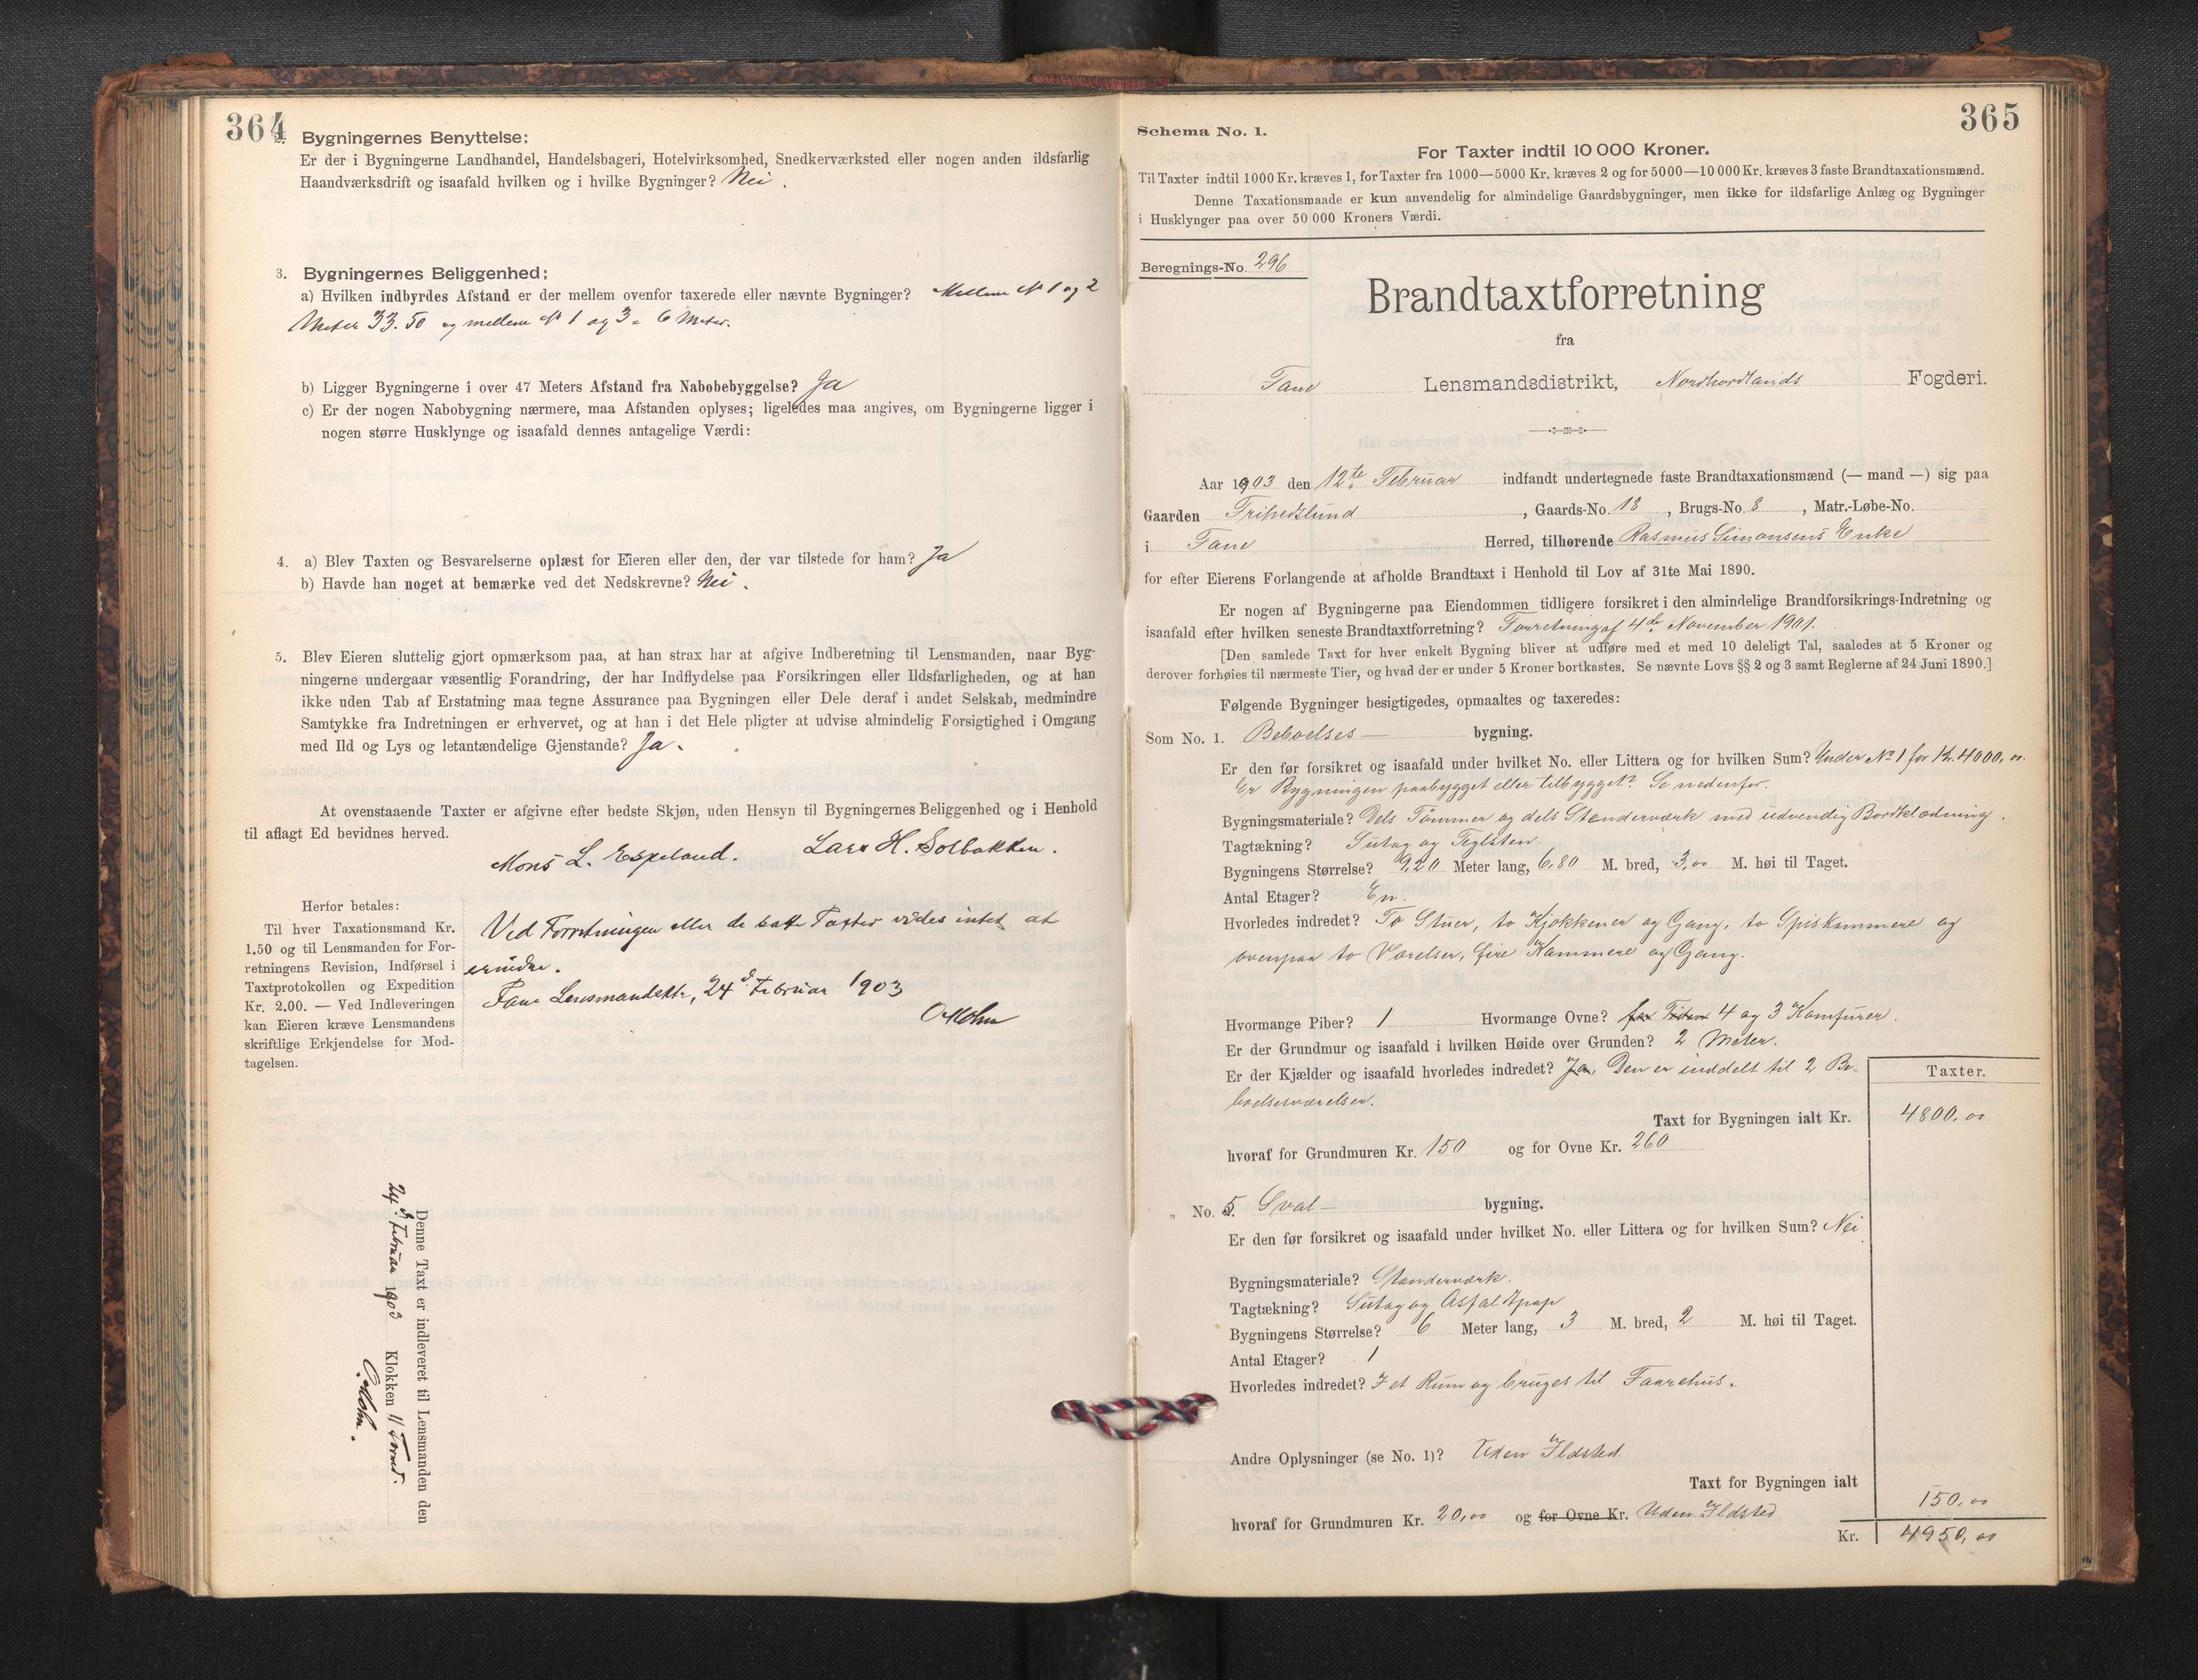 364
2. Bygningernes Benyttelse:
Er der i Bygningerne Landhandel, Handelsbageri, Hotelvirksomhed, Snedkerværksted eller nogen anden ildsfarlig
Haandværksdrift og isaafald hvilken og i hvilke Bygninger? Nei.
3. Bygningernes Beliggenhed:
a) Hvilken indbyrdes Afstand er der mellem ovenfor taxerede eller nævnte Bygninger? Mellem № 1 og 2
Meter 33.50 og mellem № 1 og 3 = 6 Meter.
b) Ligger Bygningerne i over 47 Meters Afstand fra Nabobebyggelse? Ja
c) Er der nogen Nabobygning nærmere, maa Afstanden oplyses; ligeledes maa angives, om Bygningerne ligger i
nogen større Husklynge og isaafald dennes antagelige Værdi:
4. a) Blev Taxten og Besvarelserne oplæst for Eieren eller den, der var tilstede for ham? Ja
b) Havde han noget at bemærke ved det Nedskrevne? Nei.
5. Blev Eieren sluttelig gjort opmærksom paa, at han strax har at afgive Indberetning til Lensmanden, naar Byg-
ningerne undergaar væsentlig Forandring, der har Indflydelse paa Forsikringen eller Ildsfarligheden, og at han
ikke uden Tab af Erstatning maa tegne Assurance paa Bygningen eller Dele deraf i andet Selskab, medmindre
Samtykke fra Indretningen er erhvervet, og at han i det Hele pligter at udvise almindelig Forsigtighed i Omgang
med Ild og Lys og letantændelige Gjenstande? Ja.
At ovenstaaende Taxter er afgivne efter bedste Skjøn, uden Hensyn til Bygningernes Beliggenhed og i Henhold
til aflagt Ed bevidnes herved.
Mons L. Espeland. Lars H. Solbakken.
Herfor betales:
Til hver Taxationsmand Kr.
1.50 og til Lensmanden for For-
retningens Revision, Indførsel i
Taxtprotokollen og Expedition
Kr. 2.00. — Ved Indleveringen
kan Eieren kræve Lensmandens
skriftlige Erkjendelse for Mod-
tagelsen.
Ved Forretningen eller de satte Taxter vides intet at
erindre.
Fane Lensmandsktr, 24d Februar 1903
O Mohn
Denne Taxt er indleveret til Lensmanden den
24d Februar 1903 Klokken 11 Formd.
O Mohn.
365
Schema No. 1.
For Taxter indtil 10 000 Kroner.
Til Taxter indtil 1000 Kr. kræves 1, for Taxter fra 1000—5000 Kr. kræves 2 og for 5000—10 000 Kr. kræves 3 faste Brandtaxationsmænd.
Denne Taxationsmaade er kun anvendelig for almindelige Gaardsbygninger, men ikke for ildsfarlige Anlæg og Bygninger
i Husklynger paa over 50 000 Kroners Værdi.
Beregnings-No. 296
Brandtaxtforretning
fra
Fane Lensmandsdistrikt, Nordhordlands Fogderi.
Aar 1903 den 12te Februar indfandt undertegnede faste Brandtaxationsmænd (— mand —) sig paa
Gaarden Fripedslund, Gaards-No. 18, Brugs-No. 8, Matr.-Løbe-No.
i Fane Herred, tilhørende Rasmus Simonsens Enke
for efter Eierens Forlangende at afholde Brandtaxt i Henhold til Lov af 31te Mai 1890.
Er nogen af Bygningerne paa Eiendommen tidligere forsikret i den almindelige Brandforsikrings-Indretning og
isaafald efter hvilken seneste Brandtaxtforretning? Forretning af 4de November 1901.
[Den samlede Taxt for hver enkelt Bygning bliver at udføre med et med 10 deleligt Tal, saaledes at 5 Kroner og
derover forhøies til nærmeste Tier, og hvad der er under 5 Kroner bortkastes. Se nævnte Lovs §§ 2 og 3 samt Reglerne af 24 Juni 1890.]
Følgende Bygninger besigtigedes, opmaaltes og taxeredes:
Som No. 1. Beboelses— bygning.
Er den før forsikret og isaafald under hvilket No. eller Littera og for hvilken Sum? Under № 1 for Kr. 4000,00.
Er Bygningen paabygget eller tilbygget? Se nedenfor.
Bygningsmateriale? Dels Tømmer og dels Stenderværk med udvendig Bordklædning.
Tagtækning? Sutag og Teglsten.
Bygningens Størrelse? 9,20 Meter lang, 6,80 M. bred, 3,00 M. høi til Taget.
Antal Etager? En.
Hvorledes indredet? To Stuer, to Kjøkkener og Gang, to Spiskammere og
ovenpaa to Værelser, fire Kammere og Gang.
Hvormange Piber? 1 Hvormange Ovne? 4 og 3 Komfurer.
Er der Grundmur og isaafald i hvilken Høide over Grunden? 2 Meter.
Er der Kjælder og isaafald hvorledes indredet? Ja, Den er inddelt til 2 Be-
boelsesværelser.
Taxter.
Taxt for Bygningen ialt Kr. 4800,00
hvoraf for Grundmuren Kr. 150 og for Ovne Kr. 260
" No. 5. Sval— bygning.
Er den før forsikret og isaafald under hvilket No. eller Littera og for hvilken Sum? Nei
Bygningsmateriale? Stenderværk.
Tagtækning? Sutag og Asfaltpap
Bygningens Størrelse? 6 Meter lang, 3 M. bred, 2 M. høi til Taget.
Antal Etager? 1
Hvorledes indredet? I et Rum og bruges til Faarehus.
Andre Oplysninger (se No. 1)? Uden Ildsted.
Taxt for Bygningen ialt 150,00
hvoraf for Grundmuren Kr. 20,00 og for Ovne Kr. Uden Ildsted
Kr. 4950,00